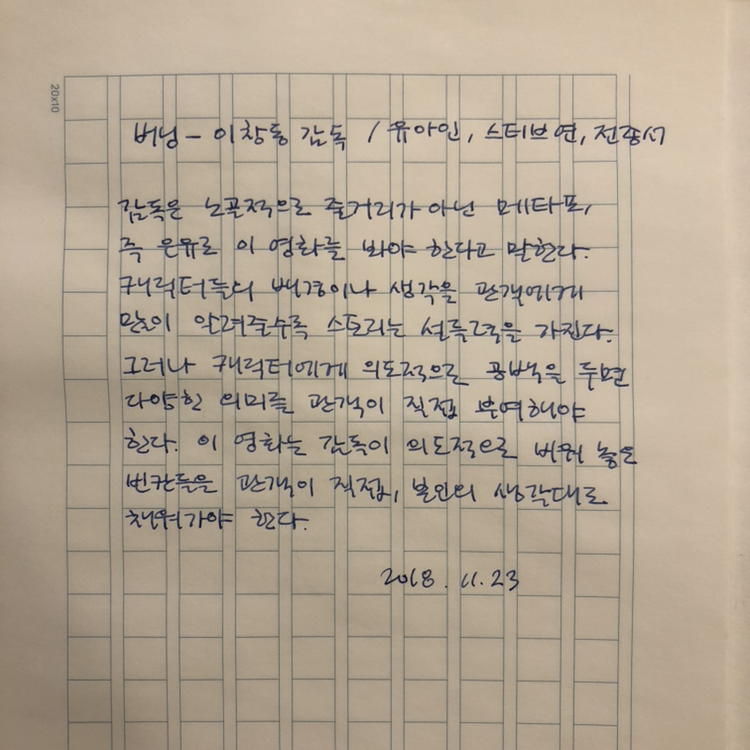 20x10
버닝 - 이창동 감독 / 유아인, 스티브연, 전종서
감독은 노골적으로 줄거리가 아닌 메타포,
즉 은유로 이 영화를 봐야 한다고 말한다.
캐릭터들의 배경이나 생각을 관객에게
많이 알려줄수록 스토리는 설득력을 가진다.
그러나 캐릭터에게 의도적으로 공백을 두면
다양한 의미를 관객이 직접 부여해야
한다. 이 영화는 감독이 의도적으로 비워 놓은
빈칸들을 관객이 직접, 본인의 생각대로
채워가야 한다.
2018. 11. 23